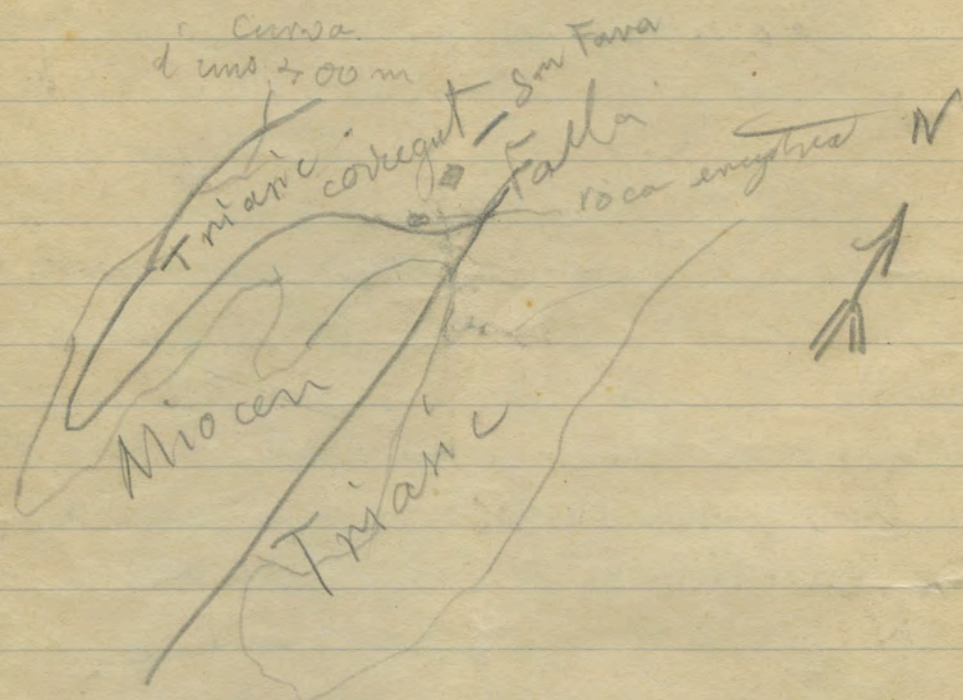 Curva
d'uns 200 m
Son Fava
Triasic corregut
Falla
roca eruptiva
N
Miocen
Triasic